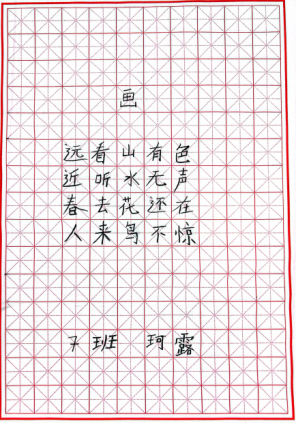 画
远看山有色
近听水无声
春去花还在
人来鸟不惊
7班 珂露